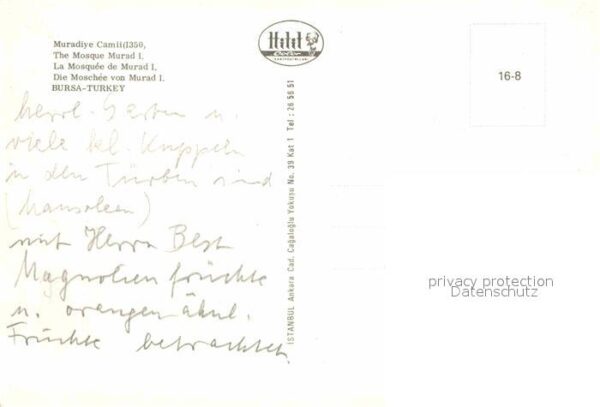 Muradiye Camii(1350,
The Mosque Murad I.
La Mosquée de Murad I.
Die Moschée von Murad I.
BURSA-TURKEY
herrl. Garten u.
viele kl. Kuppeln
in den Türben sind
(Mausoleen)
mit Herrn Best
Magnolienfrüchte
u. orangenähnl.
Früchte betrachtet.
Hitit
ISTANBUL Ankara Cad. Cağaloğlu Yokuşu No. 39 Kat 1 Tel : 26 56 51
16-8
privacy protection
Datenschutz